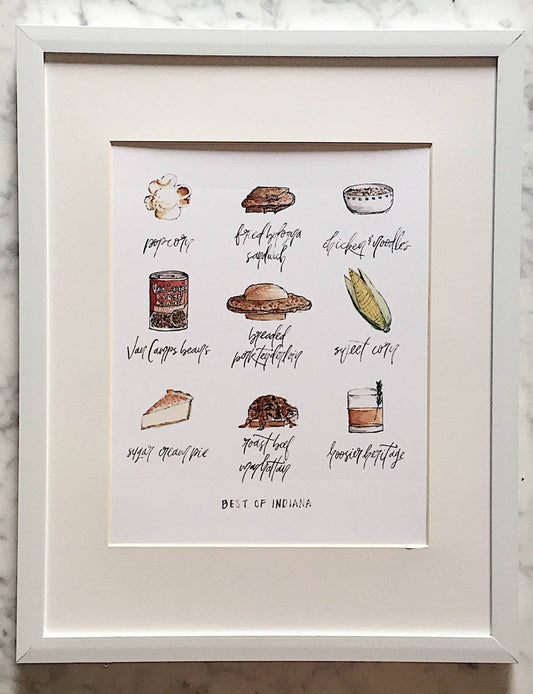 popcorn
fried bologna
sandwich
chicken & noodles
Van Camps
Van Camps beans
breaded
pork tenderloin
sweet corn
sugar cream pie
roast beef
manhattan
hoosier heritage
BEST OF INDIANA